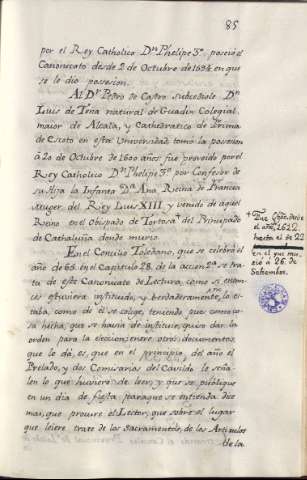 85
por el Rey Catholico Dn Phelipe 3º poseió el
Canonicato desde 2 de Octubre de 1694 en que
se le dio posesion.
Al Dr Pedro de Castro subcedióle Dn
Luis de Tena natural de Guadix Colegial
maior de Alcala, y Cathedratico de Prima
de Escoto en esta Universidad tomó la posesion
á 20 de Octubre de 1600 años fue proveido por el
Rey Catholico Dn Phelipe 3º por Confesor de
su Hija la Infanta Dª Ana Reina de Francia
Muger del Rey Luis XIII y venido de aquel
Reino en el Obispado de Tortosa + del Principado
de Cathaluña donde murió.
+ Fue desde
el año 1622
hasta el de 22
en el que mu
rió á 26 de
Setiembre.
En el Concilio Toledano, que se celebró el
año de 65 en el Capitulo 28 de la accion 2ª se tra
ta de este Canonicato de Lectura, como si enton
ces estuviera instituido, y berdaderamente lo es
taba, como de el se colige, teniendo por como co
sa hecha, que se havia de instituir, quiso dar la
orden para la eleccion, entre otros documentos,
que le dá, es, que en el principio del año el
Prelado, y dos Comisarios del Cavildo le seña
len lo que huviere de leer, y que se publique
en un dia de fiesta para que se entienda
mas, que procure el Lector, que sobre el lugar
que leiere trate de los Sacramentos, de los Articulos
de la